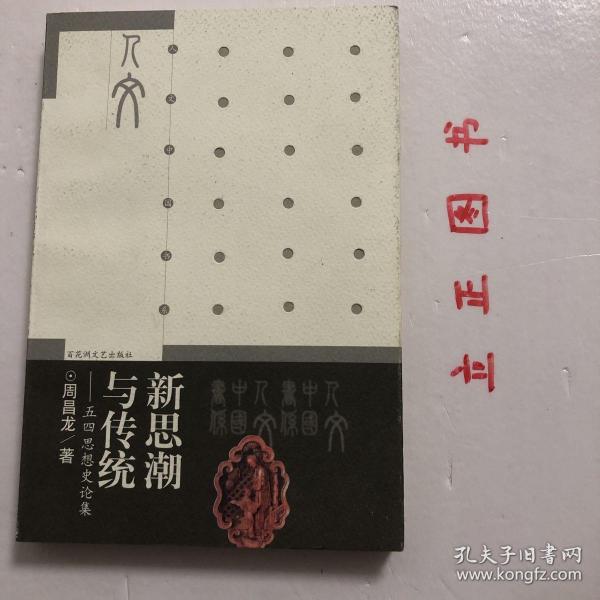 人文
人文中国书系
百花洲文艺出版社
新思潮
与传统
——五四思想史论集
⊙周昌龙／著
人文
中國
書係
人文
中國
書係
立正图书
孔夫子旧书网
www.kongfz.com